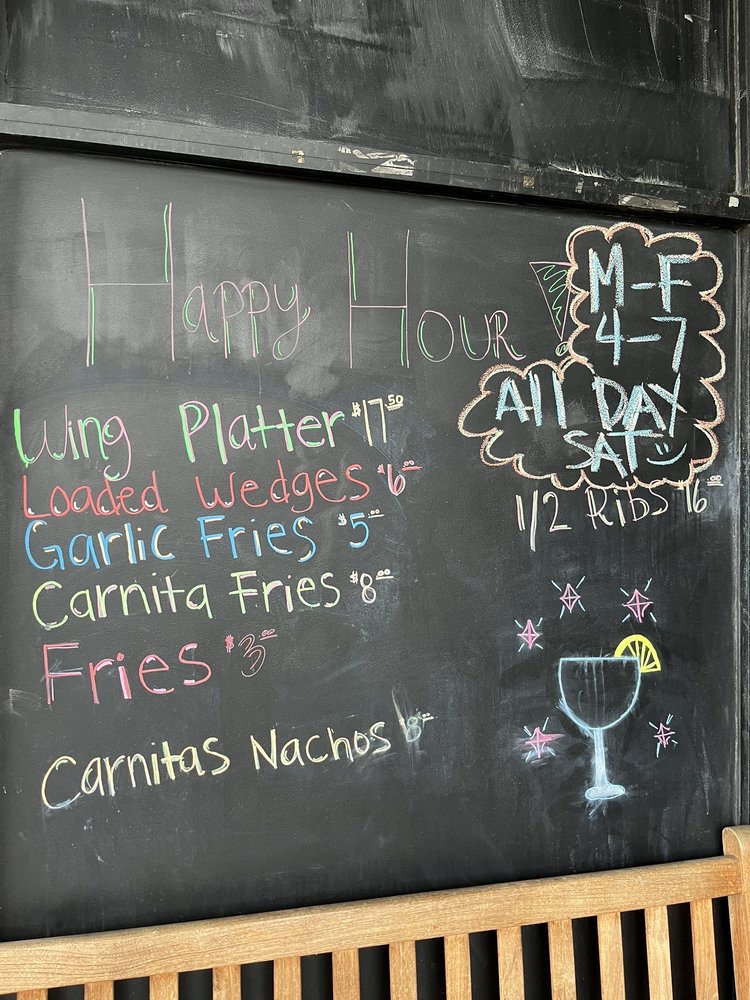 Happy Hour!
M-F
4-7
All DAY
SAT
Wing Platter $17.50
Loaded Wedges $6.00
Garlic Fries $5.00
Carnita Fries $8.00
Fries $3.00
Carnitas Nachos 8.00
1/2 Ribs 16.00